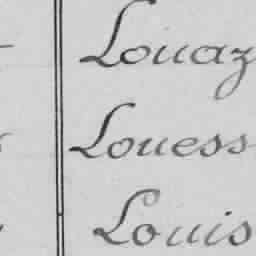 Louaz
Louess
Louis